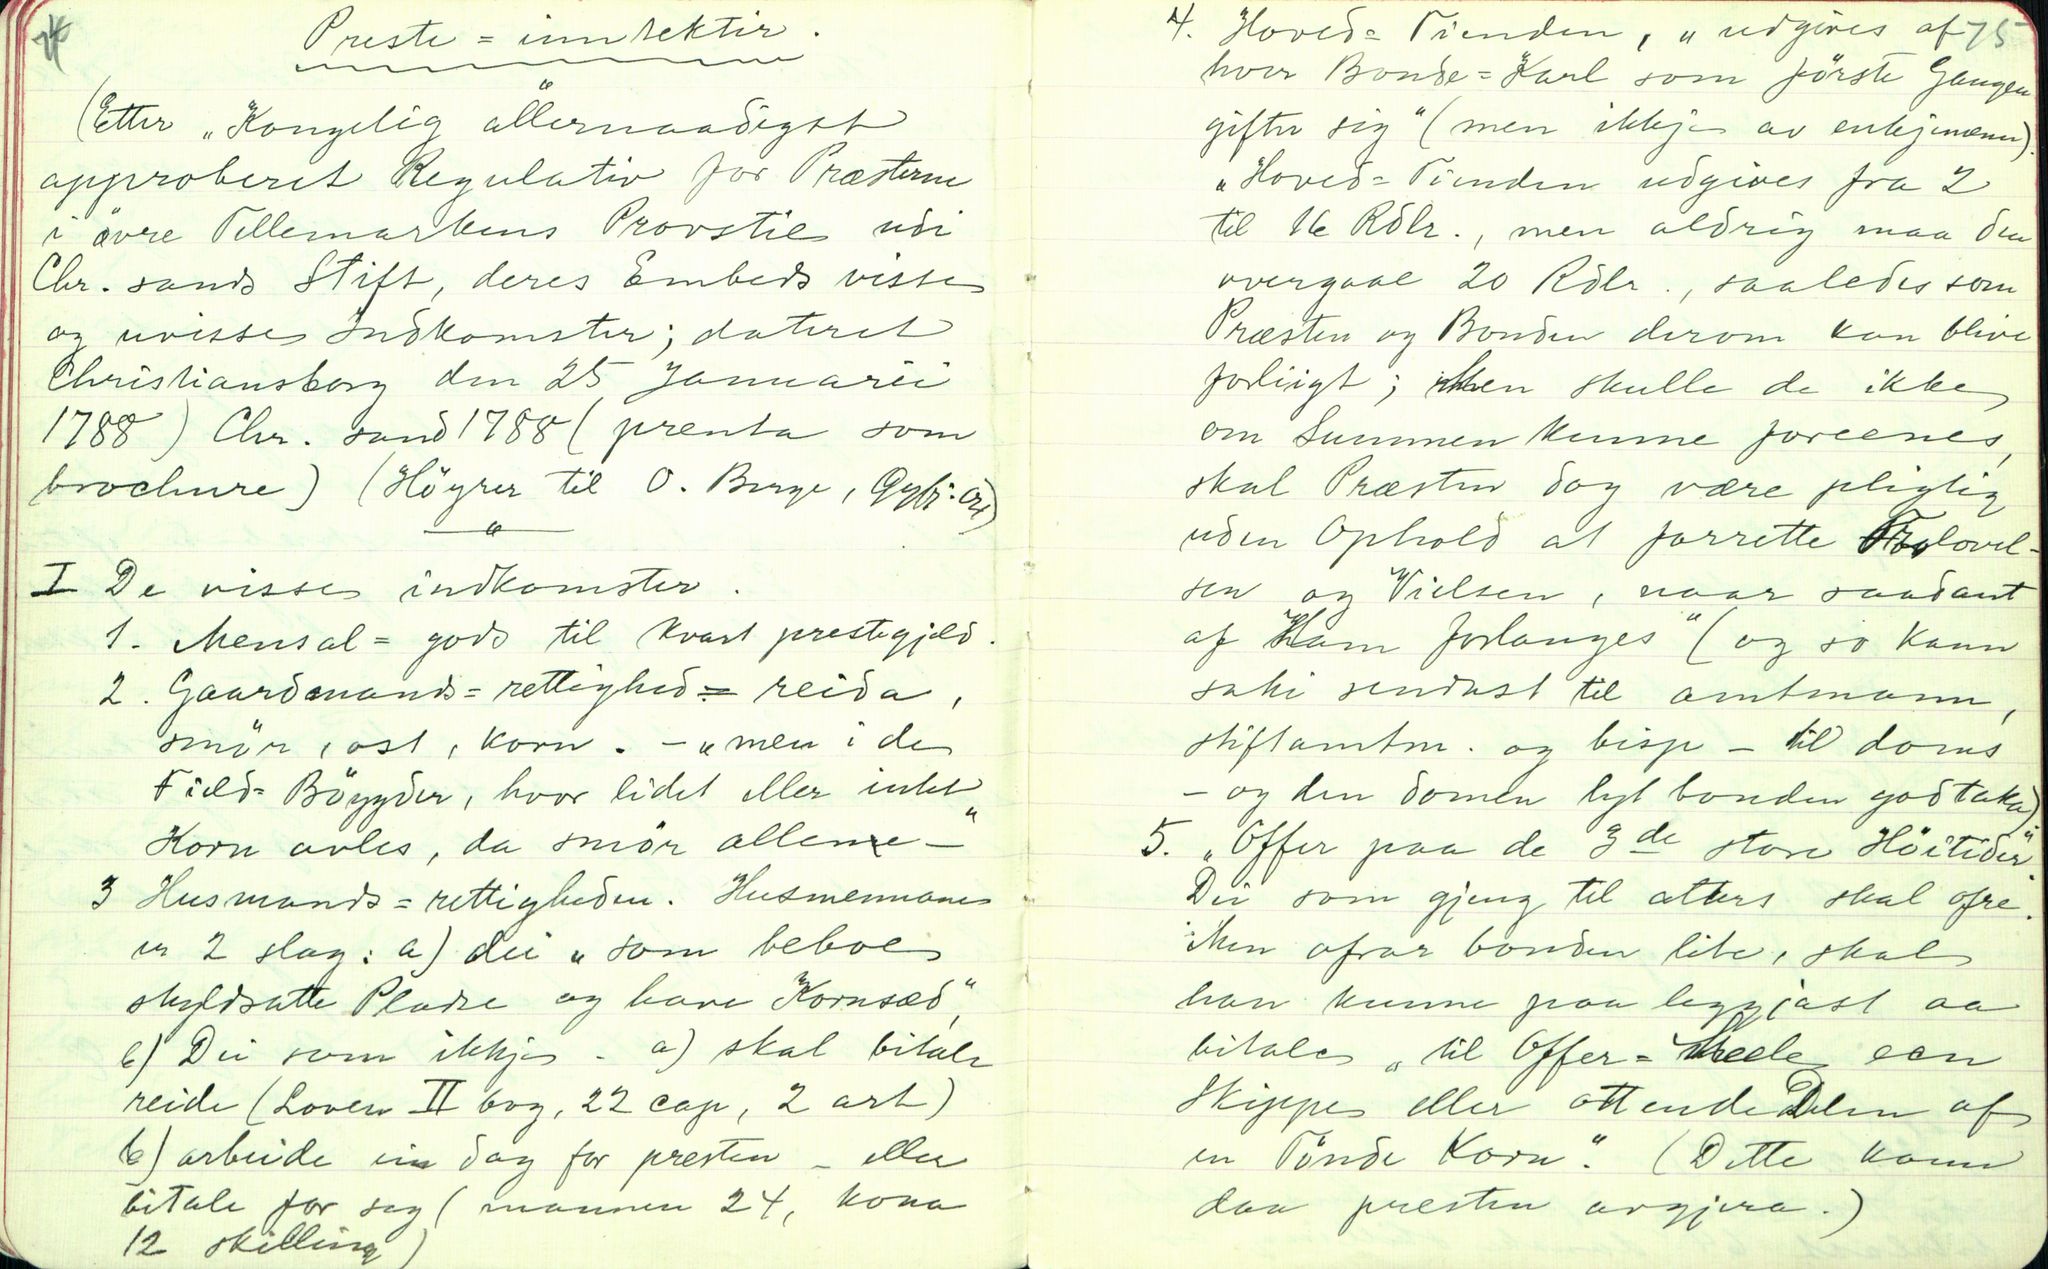 Preste=inntektir.
(Etter „Kongelig allernaadigst
approberet Regulativ for Præsterne
i øvre Tellemarkens Provstie udi
Chr.sands Stift, deres Embeds visse
og uvisse Indkomster; dateret
Christiansborg den 25 Januarii
1788) Chr.sand 1788 (prenta som
brochure) (Höyrer til O. Berge,
"
I De visse indkomster.
1. Mensal=gods til kvart prestegjeld.
2. Gaardmands=rettighed = reida,
smör, ost, korn. – „men i de
Field=Böygder, hvor lidet eller intet
Korn avles, da smör allene –"
3 Husmands=rettigheden. Husmennane
er 2 slag: a) dei „som beboe
skyldsatte Pladse og have Kornsæd",
b) Dei som ikkje. a) skal betale
reide (Loven II bog, 22 cap, 2 art)
b) arbeide ein dag for presten – eller
betale for seg (mannen 24, kona
12 skilling)
75
4. Hoved=Tienden, „udgives af
hver Bonde=Karl som förste Gangen
gifter sig" (men ikkje av enkjemenn).
„Hoved=Tienden udgives fra 2
til 16 Rdlr., men aldrig maa den
overgaae 20 Rdlr., saaledes som
Præsten og Bonden derom kan blive
forliigt; Men skulle de ikke
om Summen kunne foreenes,
skal Præsten dog være pligtig
uden Ophold at forrette Trolovel-
sen og Vielsen, naar saadant
af Ham forlanges" (og so kann
saki sendast til amtmann,
stiftamtm. og bisp – til doms
– og den domen lyt bonden godtaka).
5. „Offer paa de 3de store Höitider".
Dei som gjeng til alters skal ofre.
Men ofrar bonden lite, skal
han kunne paaleggjast aa
betale „til Offer=Meele een
Skieppe eller ottende Delen af
en Tönde Korn". (Dette kann
daa presten avgjera.)